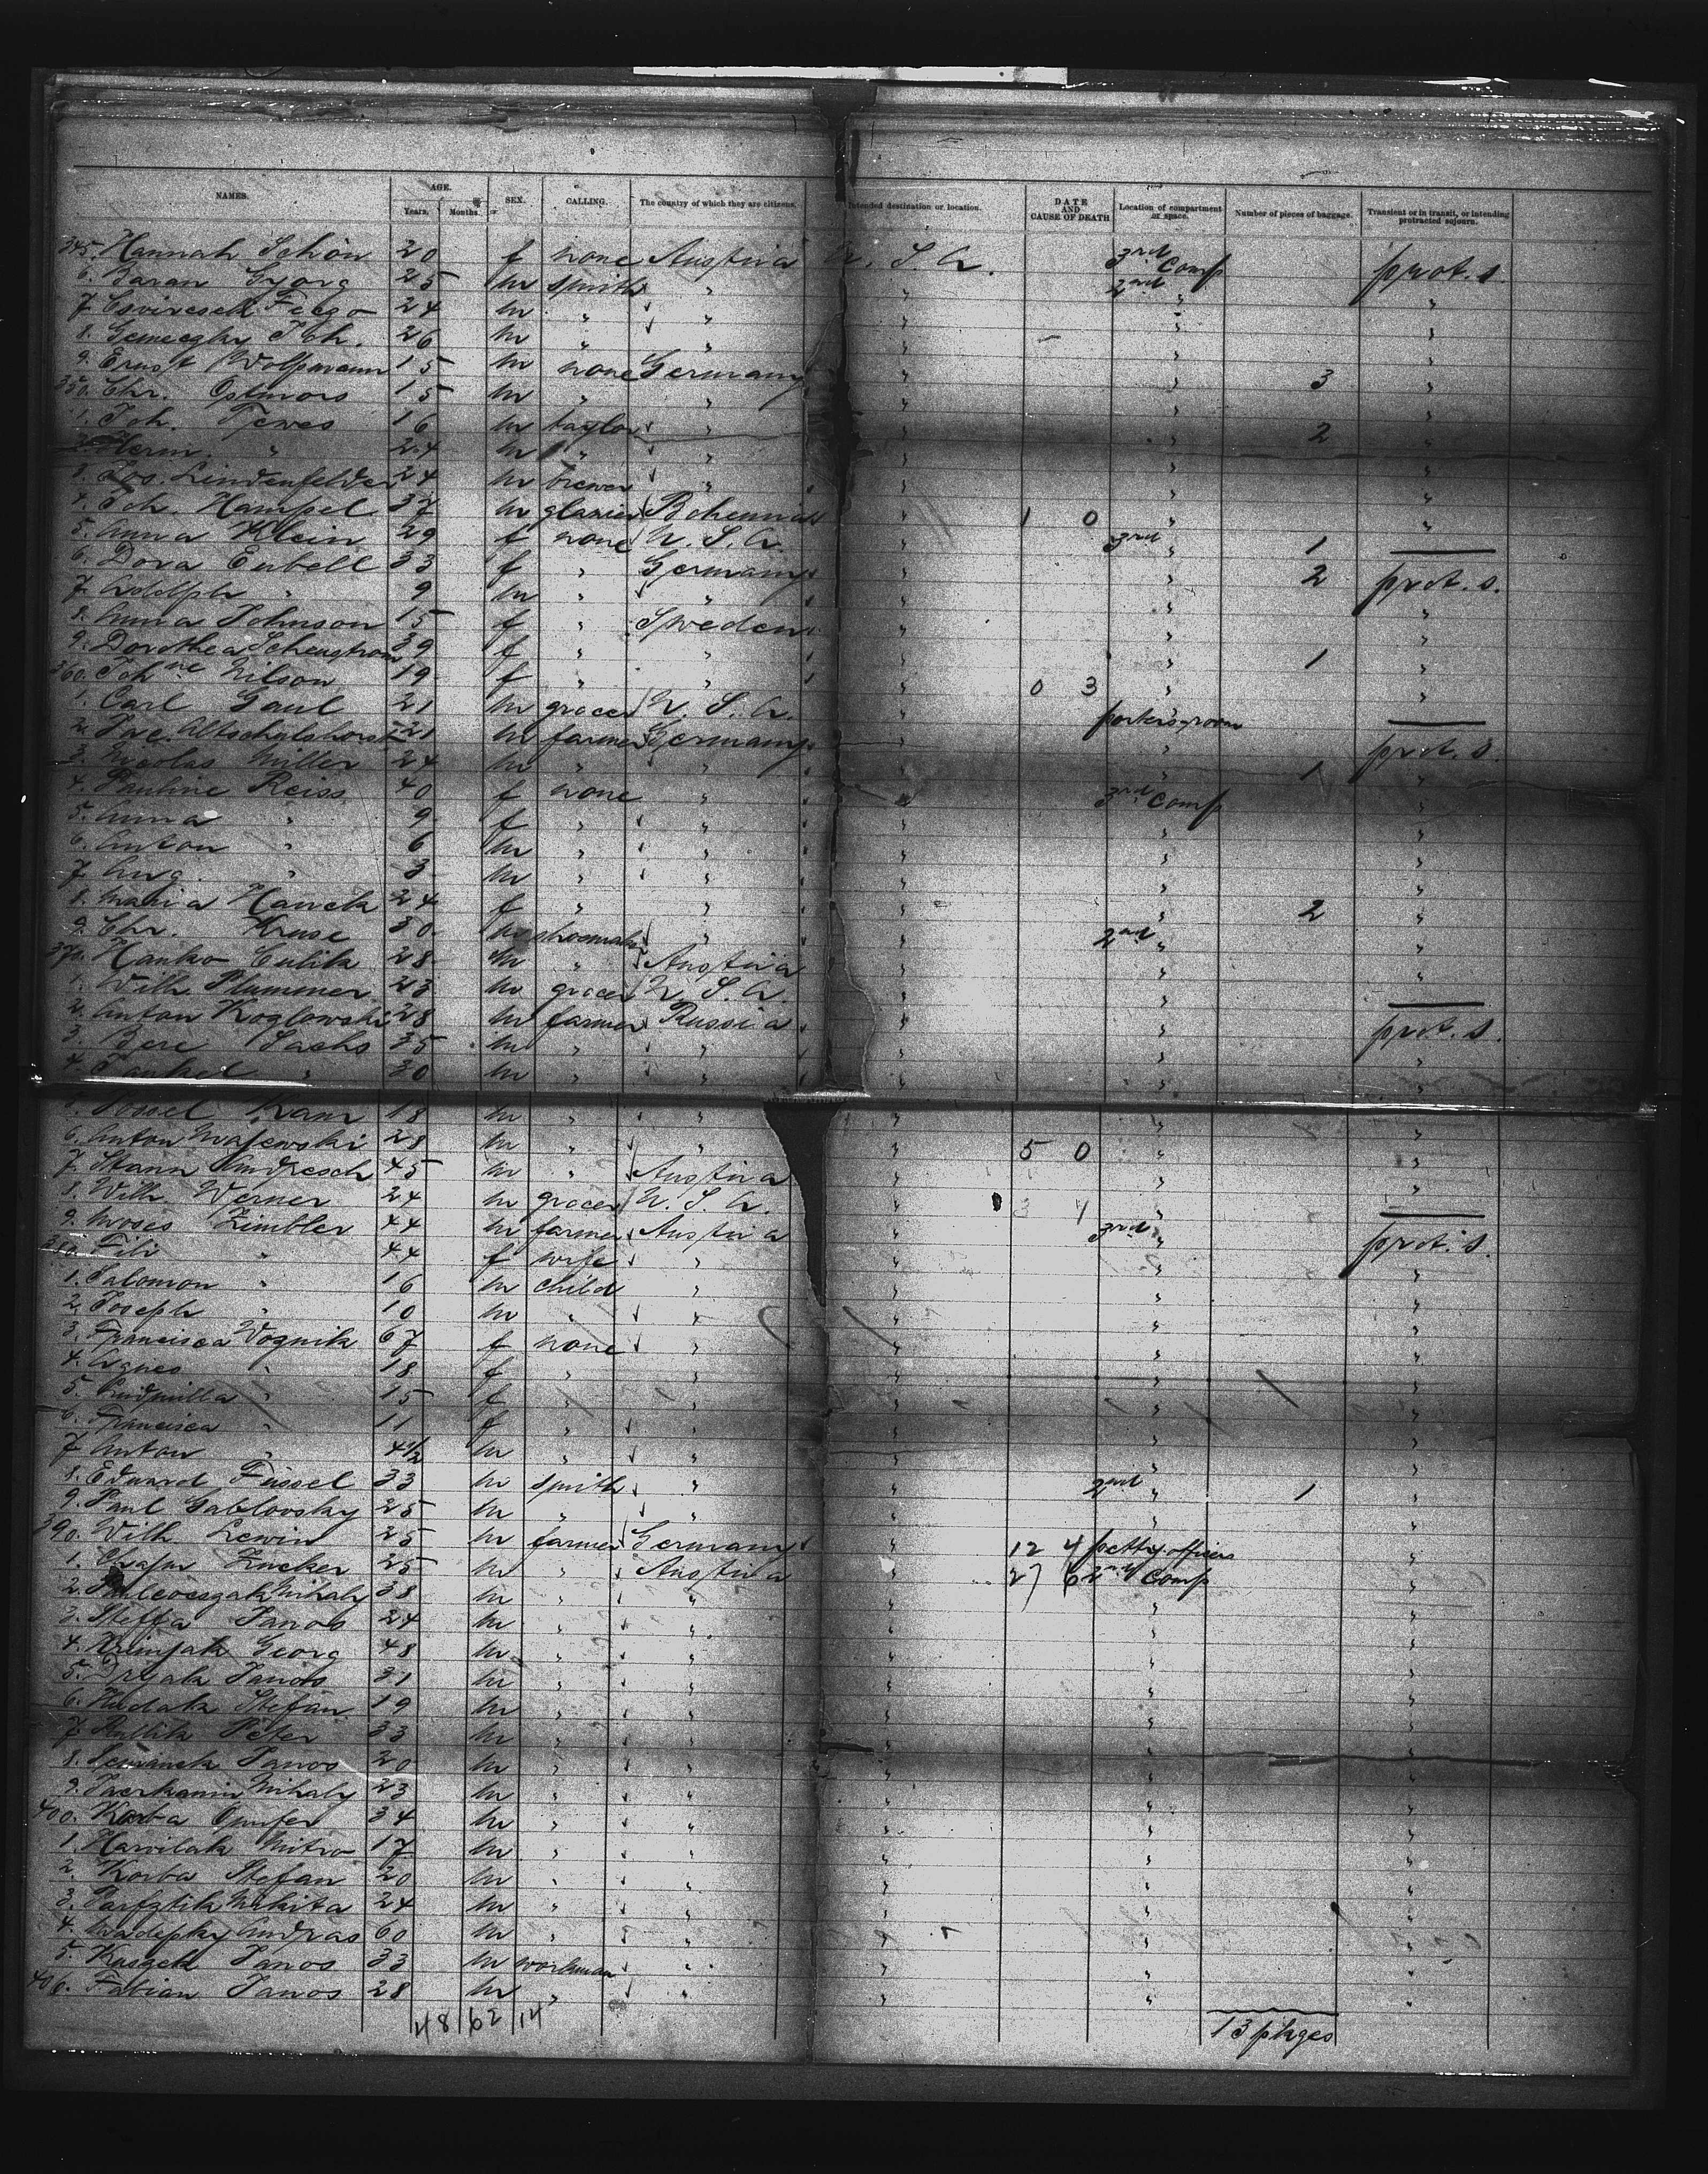 NAMES. AGE. Years. Months. SEX. CALLING. The country of which they are citizens. Intended destination or location. DATE AND CAUSE OF DEATH Location of compartment or space. Number of pieces of baggage. Transient or in transit, or intending protracted sojourn.
345. Hannah Schön 20 f none Austria U. S. A. 3rd Comp prot. s.
6. Baran Gyorg 25 m smith " " 2nd " "
7. 24 m " " " " "
8. Joh. 26 m " " " " "
9. Ernst Wolpmann 15 m none Germany " " 3 "
350. Chr. 15 m " " " " "
1. Joh. Tewes 16 m taylor " " " 2 "
2. Herm. " 24 m " " " " "
3. Jos. Lindenfelder 24 m brewer " " " "
4. Joh. Hampel 37 m glazier Bohemia " 1 0 " "
5. Anna Klein 29 f none U. S. A. " 3rd " 1 —
6. Dora Eubell 33 f " Germany " " 2 prot. s.
7. Adolph " 9 m " " " " "
8. Anna Johnson 15 f " Sweden " " "
9. Dorothea 39 f " " " " 1 "
360. Joh ne Nilson 19 f " " " 0 3 " "
1. Carl Gaul 21 m grocer U. S. A. " porter's-room —
2. Jac. 21 m farmer Germany " " prot. s.
3. Nicolas Miller 24 m " " " " 1 "
4. Pauline Reiss 40 f none " " 3rd Comp "
5. Anna " 9 f " " " " "
6. Anton " 6 m " " " " "
7. Aug. " 3 m " " " " "
8. Maria Hanek 24 f " " " " 2 "
9. Chr. Kruse 30 m shoemaker " " 2nd " "
370. Hanko Culik 28 m " Austria " " "
1. Wilh. Plummer 23 m grocer U. S. A. " " —
2. Anton Koglowski 28 m farmer Russia " " prot. s.
3. Bere Sachs 35 m " " " " "
4. Jankel " 30 m " " " " "
5. Jossel 18 m " " " " "
6. Anton Majewski 28 m " " " 5 0 " "
7. 45 m " Austria " " "
8. Wilh. Werner 24 m grocer U. S. A. " 3 " —
9. Moses Zimbler 44 m farmer Austria " 3rd " prot. s.
380. Fili " 44 f wife " " " "
1. Salomon " 16 m child " " " "
2. Joseph " 10 m " " " " "
3. Francisca Wognik 67 f none " " " "
4. Agnes " 18 f " " " " "
5. Ludmilla " 15 f " " " " "
6. Francisca " 11 f " " " " "
7. Anton " 4 1/2 m " " " " "
8. Eduard Füssel 33 m smith " " 2nd " 1 "
9. Paul Gablovsky 25 m " " " " "
390. Wilh. Lewin 25 m farmer Germany " 12 4 petty officers "
1. Zucker 25 m " Austria " 27 6 2nd Comp "
2. Mihaly 38 m " " " " "
3. Steffa Janos 24 m " " " " "
4. Georg 48 m " " " " "
5. Janos 31 m " " " " "
6. Hudak Stefan 19 m " " " " "
7. Peter 33 m " " " " "
8. Janos 20 m " " " " "
9. Mihaly 23 m " " " " "
400. Korba 34 m " " " " "
1. Mitro 17 m " " " " "
2. Korba Stefan 20 m " " " " "
3. Nikita 24 m " " " " "
4. Andras 60 m " " " " "
5. Janos 33 m workman " " " "
406. Fabian Janos 28 m " " " " "
48 62 14 13 pkges